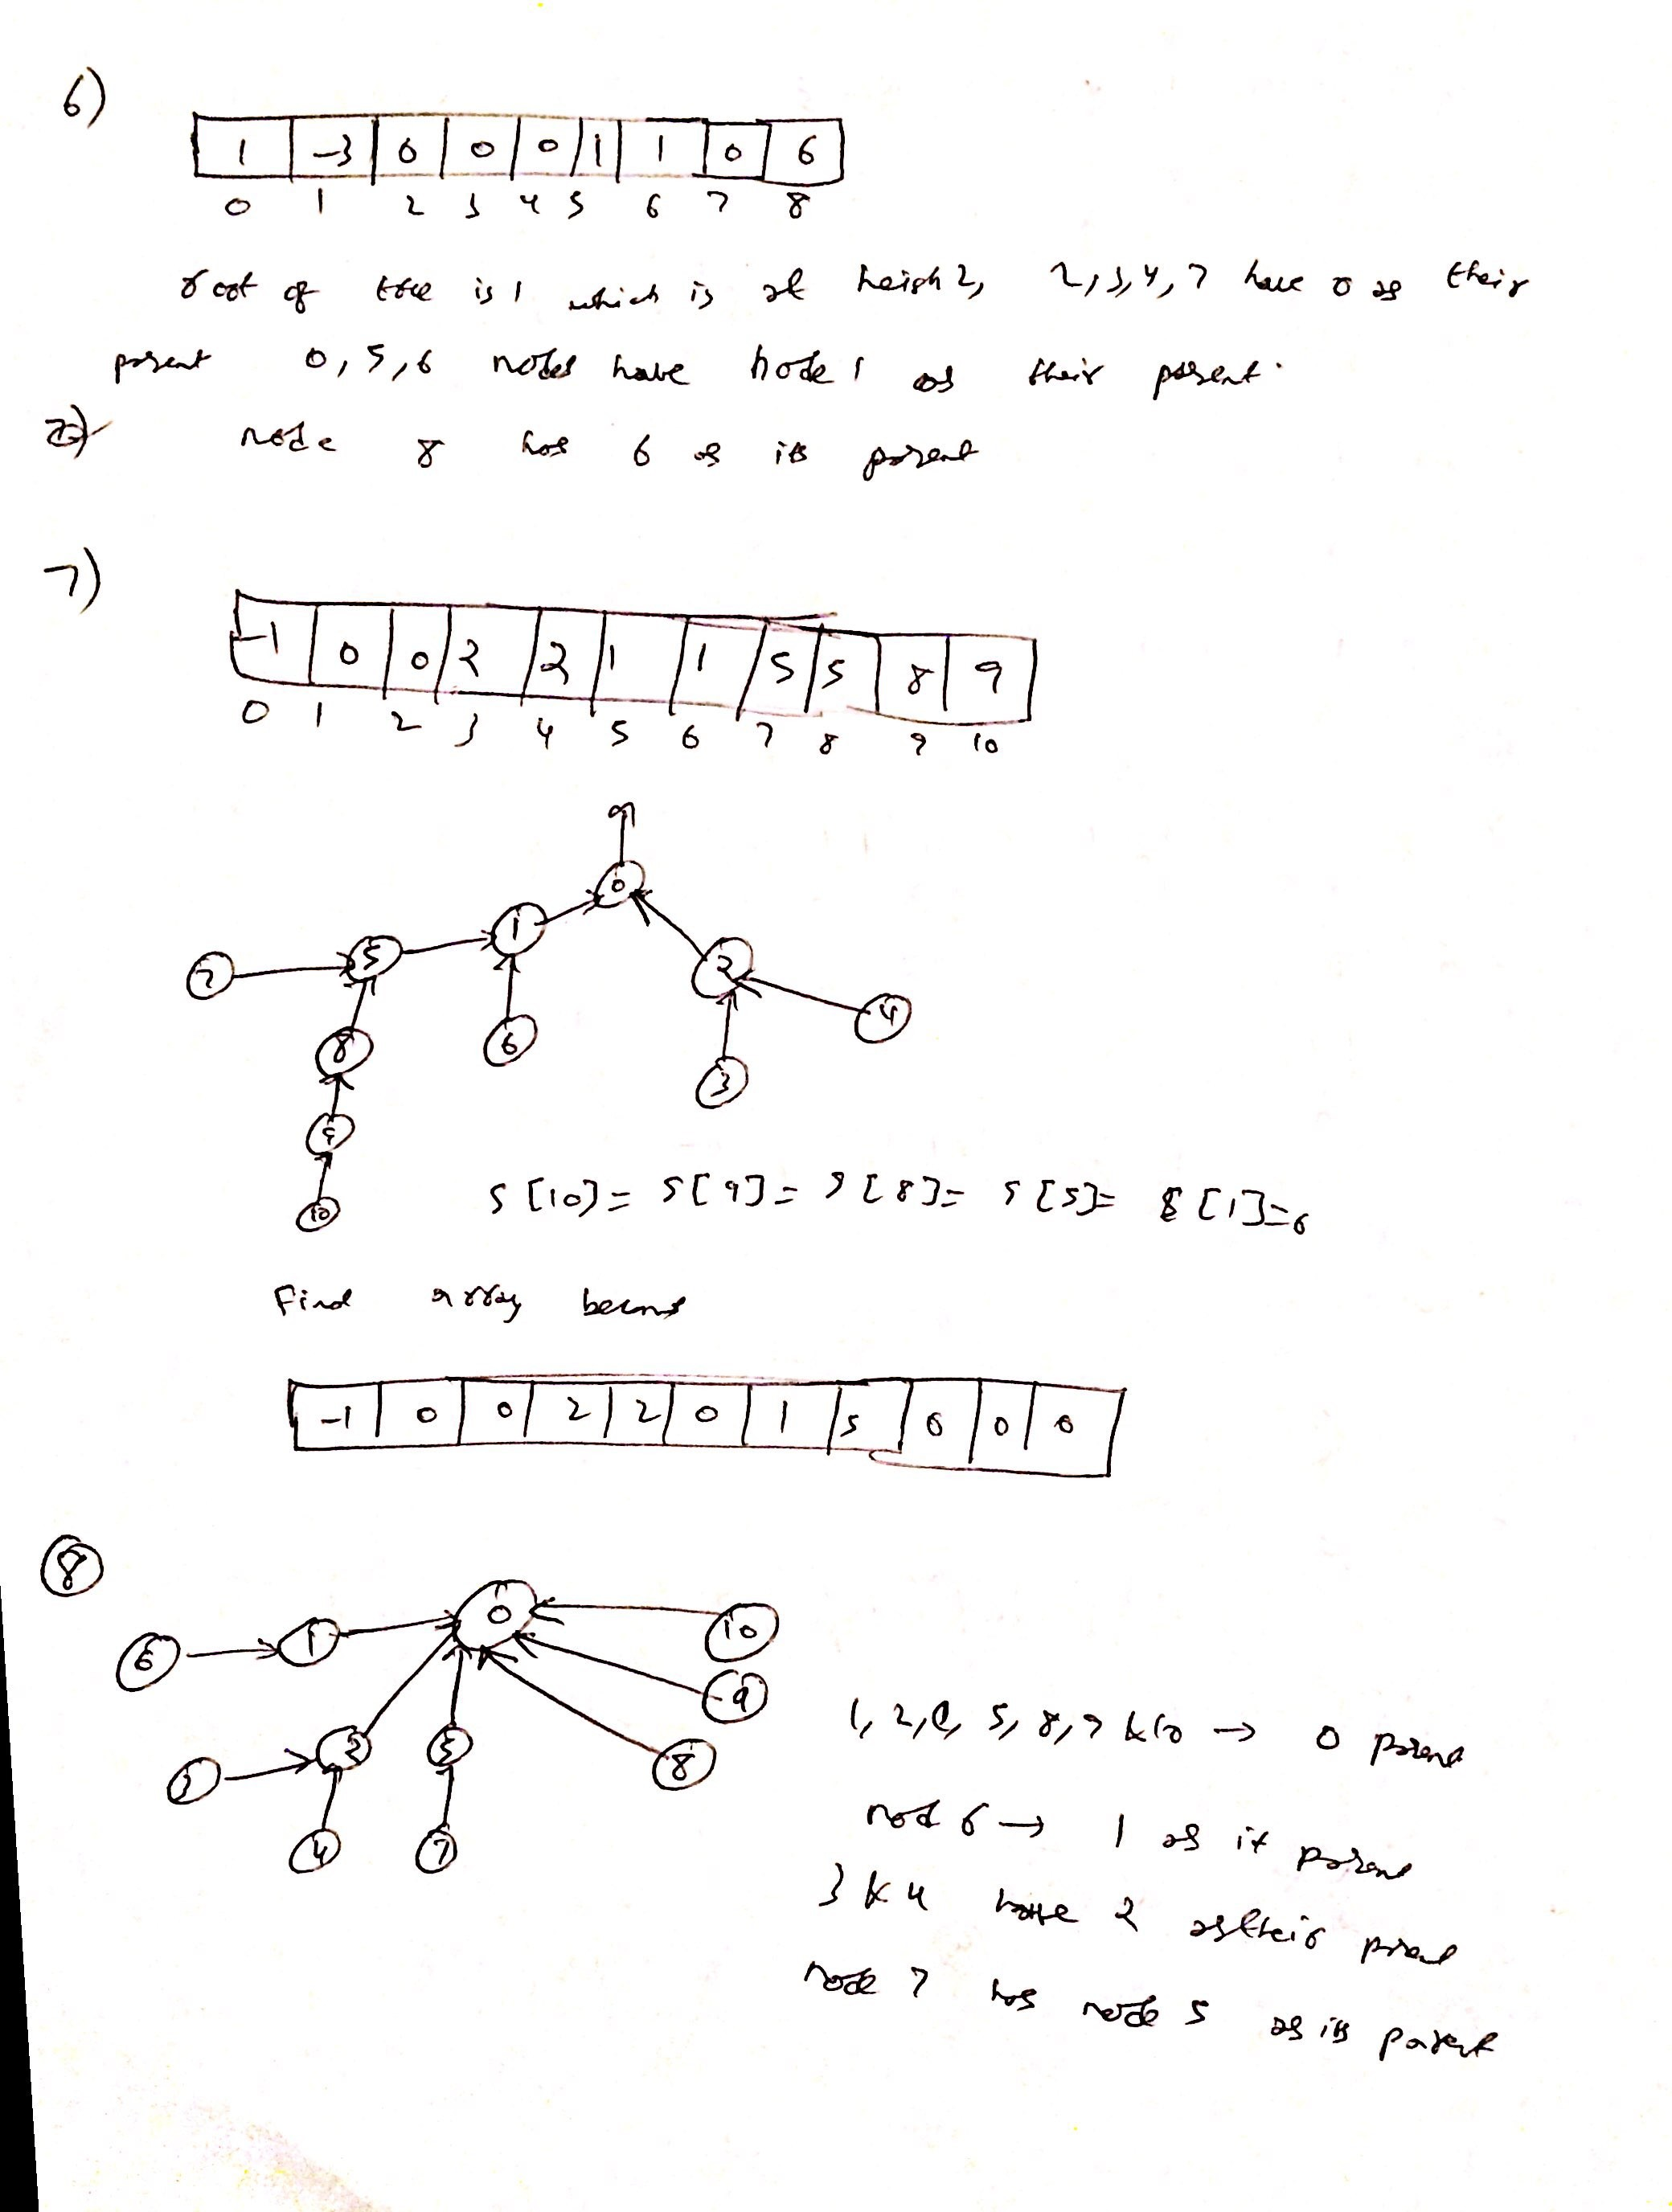 6)
1 -3 0 0 0 1 1 0 6
0 1 2 3 4 5 6 7 8
root of tree is 1 which is at heigh 2, 2,3,4,7 have 0 as their
parent 0,5,6 nodes have node 1 as their parent.
node 8 has 6 as its parent
7)
-1 0 0 2 2 1 1 5 5 8 9
0 1 2 3 4 5 6 7 8 9 10
0
1
5
7
2
4
8
6
3
9
10
S[10]= S[9]= S[8]= S[5]= S[1]=0
Find array becoms
-1 0 0 2 2 0 1 5 0 0 0
8
0
10
6 1
9
1, 2, 5, 8, 9 & 10 → 0 parent
3 2 5 8
nod 6 → 1 as it parent
4 7
3 & 4 have 2 as their parent
node 7 has node 5 as its parent